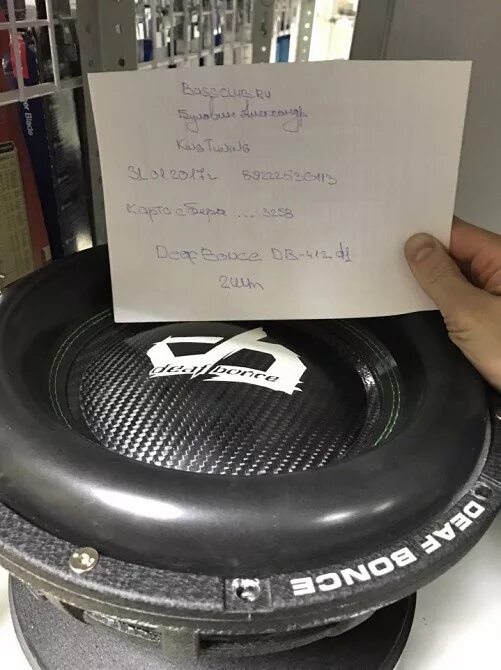 Bassclub.ru
Александр
KingTuning
31.01.2017г 89222536113
Карта сбера ... 3258
Deaf Bonce DB-412 d1
2шт
deaf bonce
DEAF BONCE